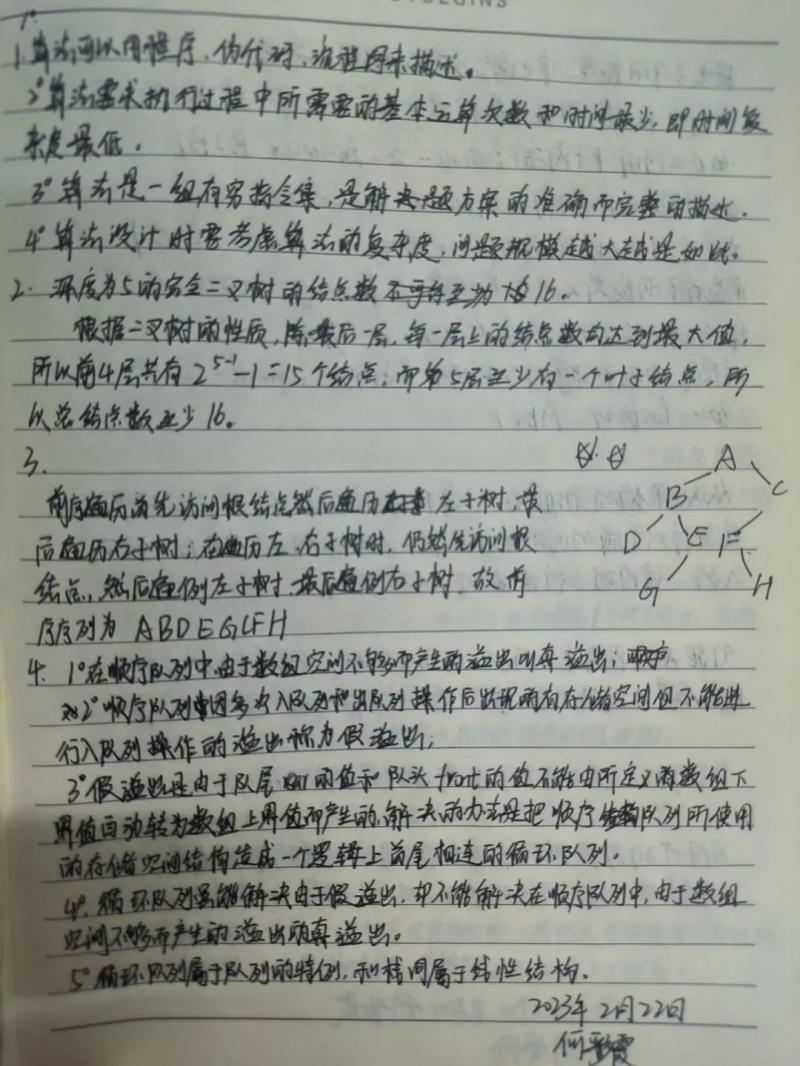 1°
1.算法可以用程序、伪代码、流程图来描述。
2°算法需求执行过程中所需要的基本运算次数和时间最少,即时间复
杂度最低。
3°算法是一组有穷指令集,是解决题方案的准确而完整的描述.
4°算法设计时要考虑算法的复杂度,问题规模越大越是如此。
2. 深度为5的完全二叉树的结点数不可 为 16。
根据二叉树的性质,除最后一层,每一层上的结点数均达到最大值,
所以前4层共有 2^5-1-1=15个结点,而第5层至少有一个叶子结点,所
以总结点数至少 16。
3.
A
B C
D E F
G H
前序遍历首先访问根结点然后遍历左子树,最
后遍历右子树;在遍历左、右子树时,仍然先访问根
结点,然后遍例左子树,最后遍例右子树,故前
序序列为 ABDEGCFH
4. 1°在顺序队列中,由于数组空间不够而产生的溢出叫真溢出;
2°顺序队列因多次入队列和出队列操作后出现的有存储空间但不能进
行入队列操作的溢出称为假溢出;
3°假溢出是由于队尾 的值和队头front的值不能由所定义的数组下
界值自动转为数组上界值而产生的,解决的办法是把顺序队列所使用
的存储空间结构造成一个逻辑上首尾相连的循环队列.
4°.循环队列虽能解决由于假溢出,却不能解决在顺序队列中,由于数组
空间不够而产生的溢出的真溢出。
5°循环队列属于队列的特例,和栈同属于线性结构.
2023年2月22日
何 霞